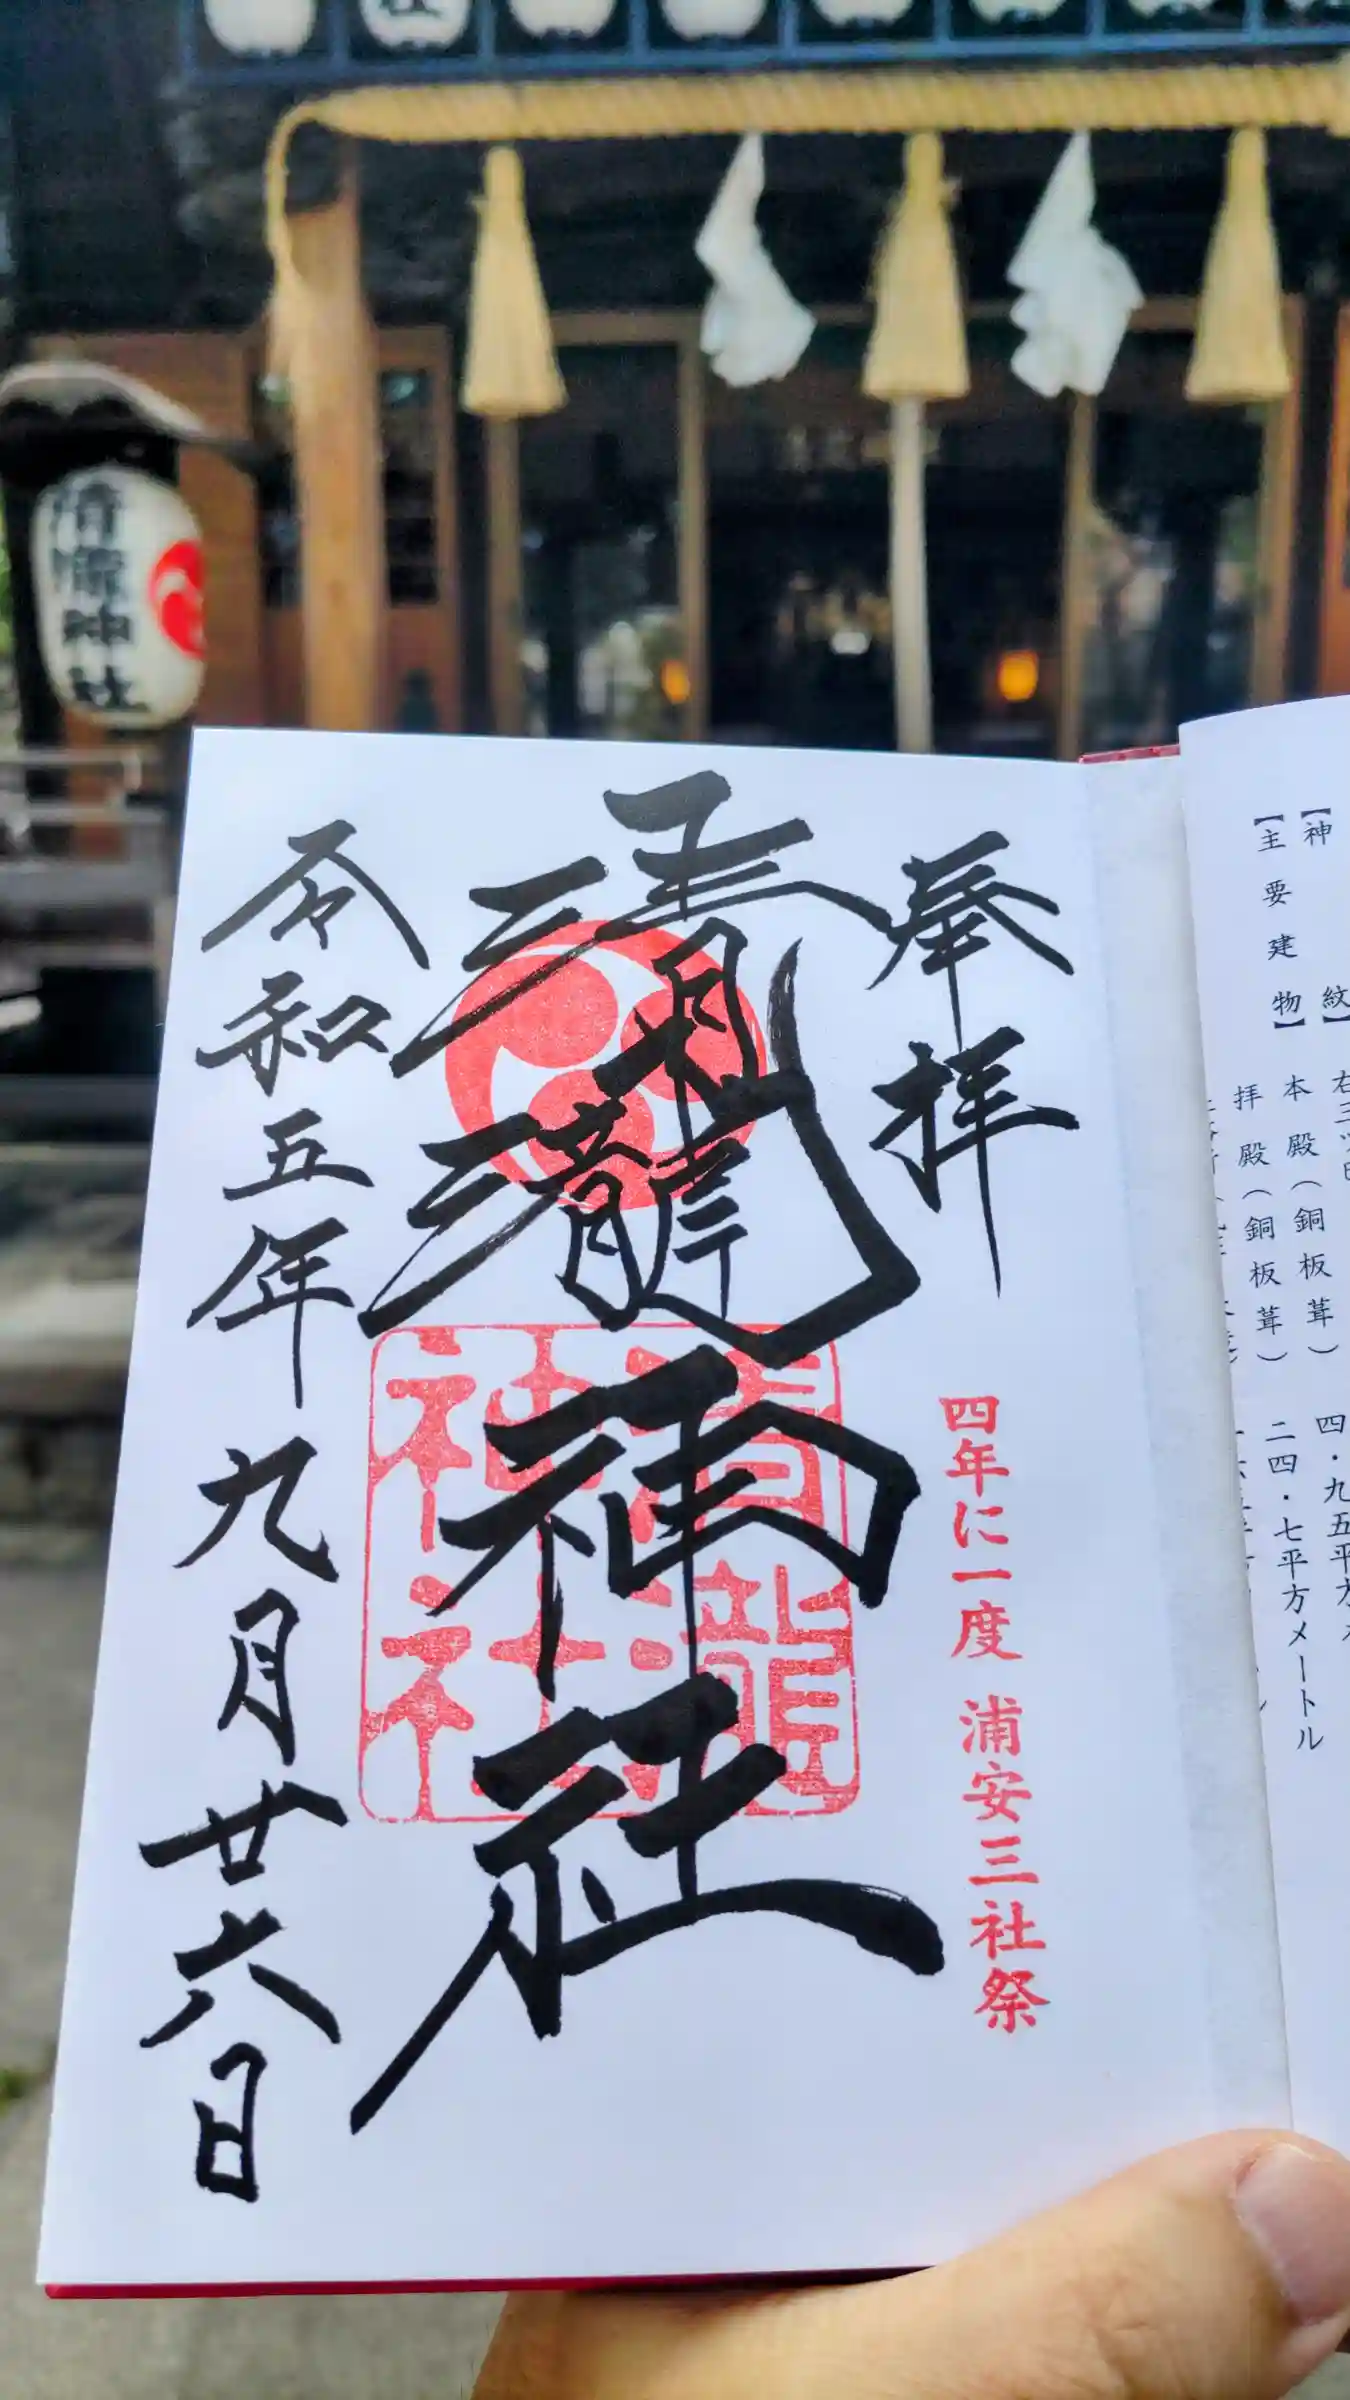 社
清瀧神社
奉拝
四年に一度 浦安三社祭
清瀧神社
清瀧神社
令和五年九月廿六日
【神
紋】
【主要建物】
本殿(銅板葺)
四・九五平方
拝殿(銅板葺)
二四・七平方メートル